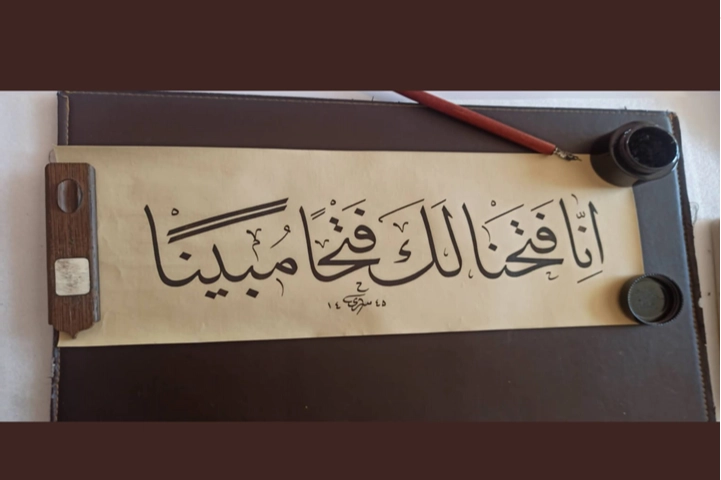 اِنَّا فَتَحْنَا لَكَ فَتْحًا مُبينًا
١٤ ٤٥